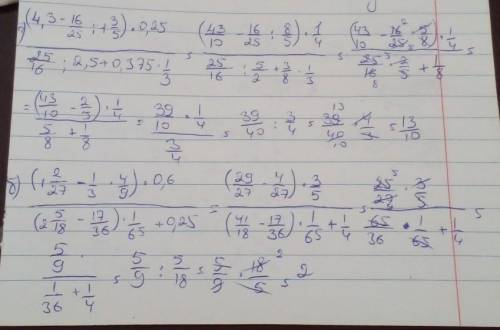 а) (4,3 - 16/25 : 1 3/5) · 0,25 / (25/16 : 2,5 + 0,375 · 1/3) = (43/10 - 16/25 : 8/5) · 1/4 / (25/16 : 5/2 + 3/8 · 1/3) = (43/10 - 16/25 · 5/8) · 1/4 / (25/16 · 2/5 + 1/8) =
= (43/10 - 2/5) · 1/4 / (5/8 + 1/8) = 39/10 · 1/4 / 3/4 = 39/40 : 3/4 = 39/40 · 4/3 = 13/10
б) (1 2/27 - 1/3 · 4/9) · 0,6 / ((2 5/18 - 17/36) · 1/65 + 0,25) = (29/27 - 4/27) · 3/5 / ((41/18 - 17/36) · 1/65 + 1/4) = 25/27 · 3/5 / (65/36 · 1/65 + 1/4) =
5/9 / (1/36 + 1/4) = 5/9 : 5/18 = 5/9 · 18/5 = 2